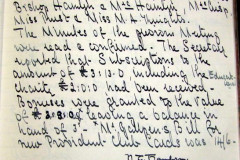 Bishop Hamlyn & Mrs Hamlyn, Mrs
Miss & Miss M. A. Knights.
The Minutes of the previous Meeting
were read & confirmed. The Secretary
reported that Subscriptions to the
amount of £3:13:0 including the
charity £2:0:0 had been received.
Bonuses were granted to the value
of leaving a balance in
hand of 3d. Bill for
new Provident Club Cards was 14/6